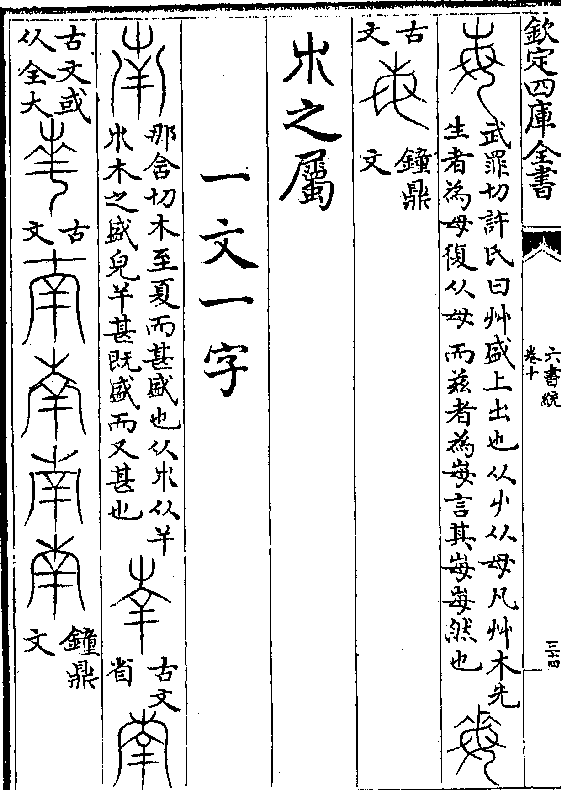 欽定四庫全書
六書統
卷十
三十四
武罪切許氏曰艸盛上出也从屮从母凡艸木先
生者為母復从母而兹者為每言其每每然也
古文
鐘鼎文
𣎵之屬
一文一字
那含切木至夏而甚盛也从𣎵从𢆉
𣎵木之盛皃𢆉甚既盛而又甚也
古文省
古文或从全大
古文
鐘鼎文